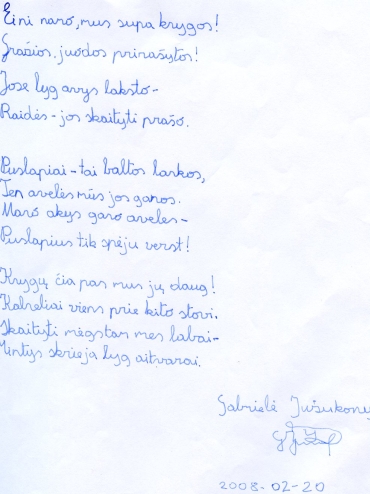 Eini namo, mus supa knygos!
Gražios, juodos prirašytos!
Jose lyg avys laksto -
Raidės - jos skaityti prašo.
Puslapiai - tai baltos lankos,
Ten avelės mūs jos ganos.
Mano akys gano aveles -
Puslapius tik spėju verst!
Knygų čia pas mus jų daug!
Kalneliai viens prie kito stovi.
Skaityti mėgstam mes labai -
Mintys skrieja lyg aitvarai.
Gabrielė
2008-02-20